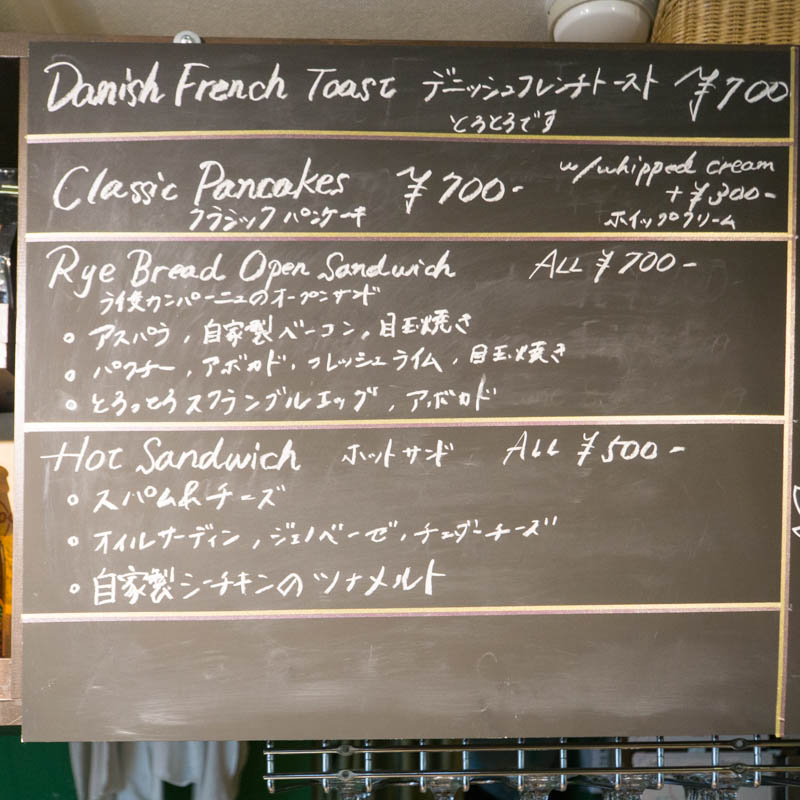 Danish French Toast デニッシュフレンチトースト ¥700
とろとろです
Classic Pancakes ¥700-
クラシックパンケーキ
w/whipped cream
+ ¥300-
ホイップクリーム
Rye Bread Open Sandwich ALL ¥700-
ライ麦カンパーニュのオープンサンド
○ アスパラ, 自家製ベーコン, 目玉焼き
○ パクチー, アボカド, フレッシュライム, 目玉焼き
○ とろっとろスクランブルエッグ, アボカド
Hot Sandwich ホットサンド ALL ¥500-
○ スパム&チーズ
○ オイルサーディン, ジェノベーゼ, チェダーチーズ
○ 自家製シーチキンのツナメルト